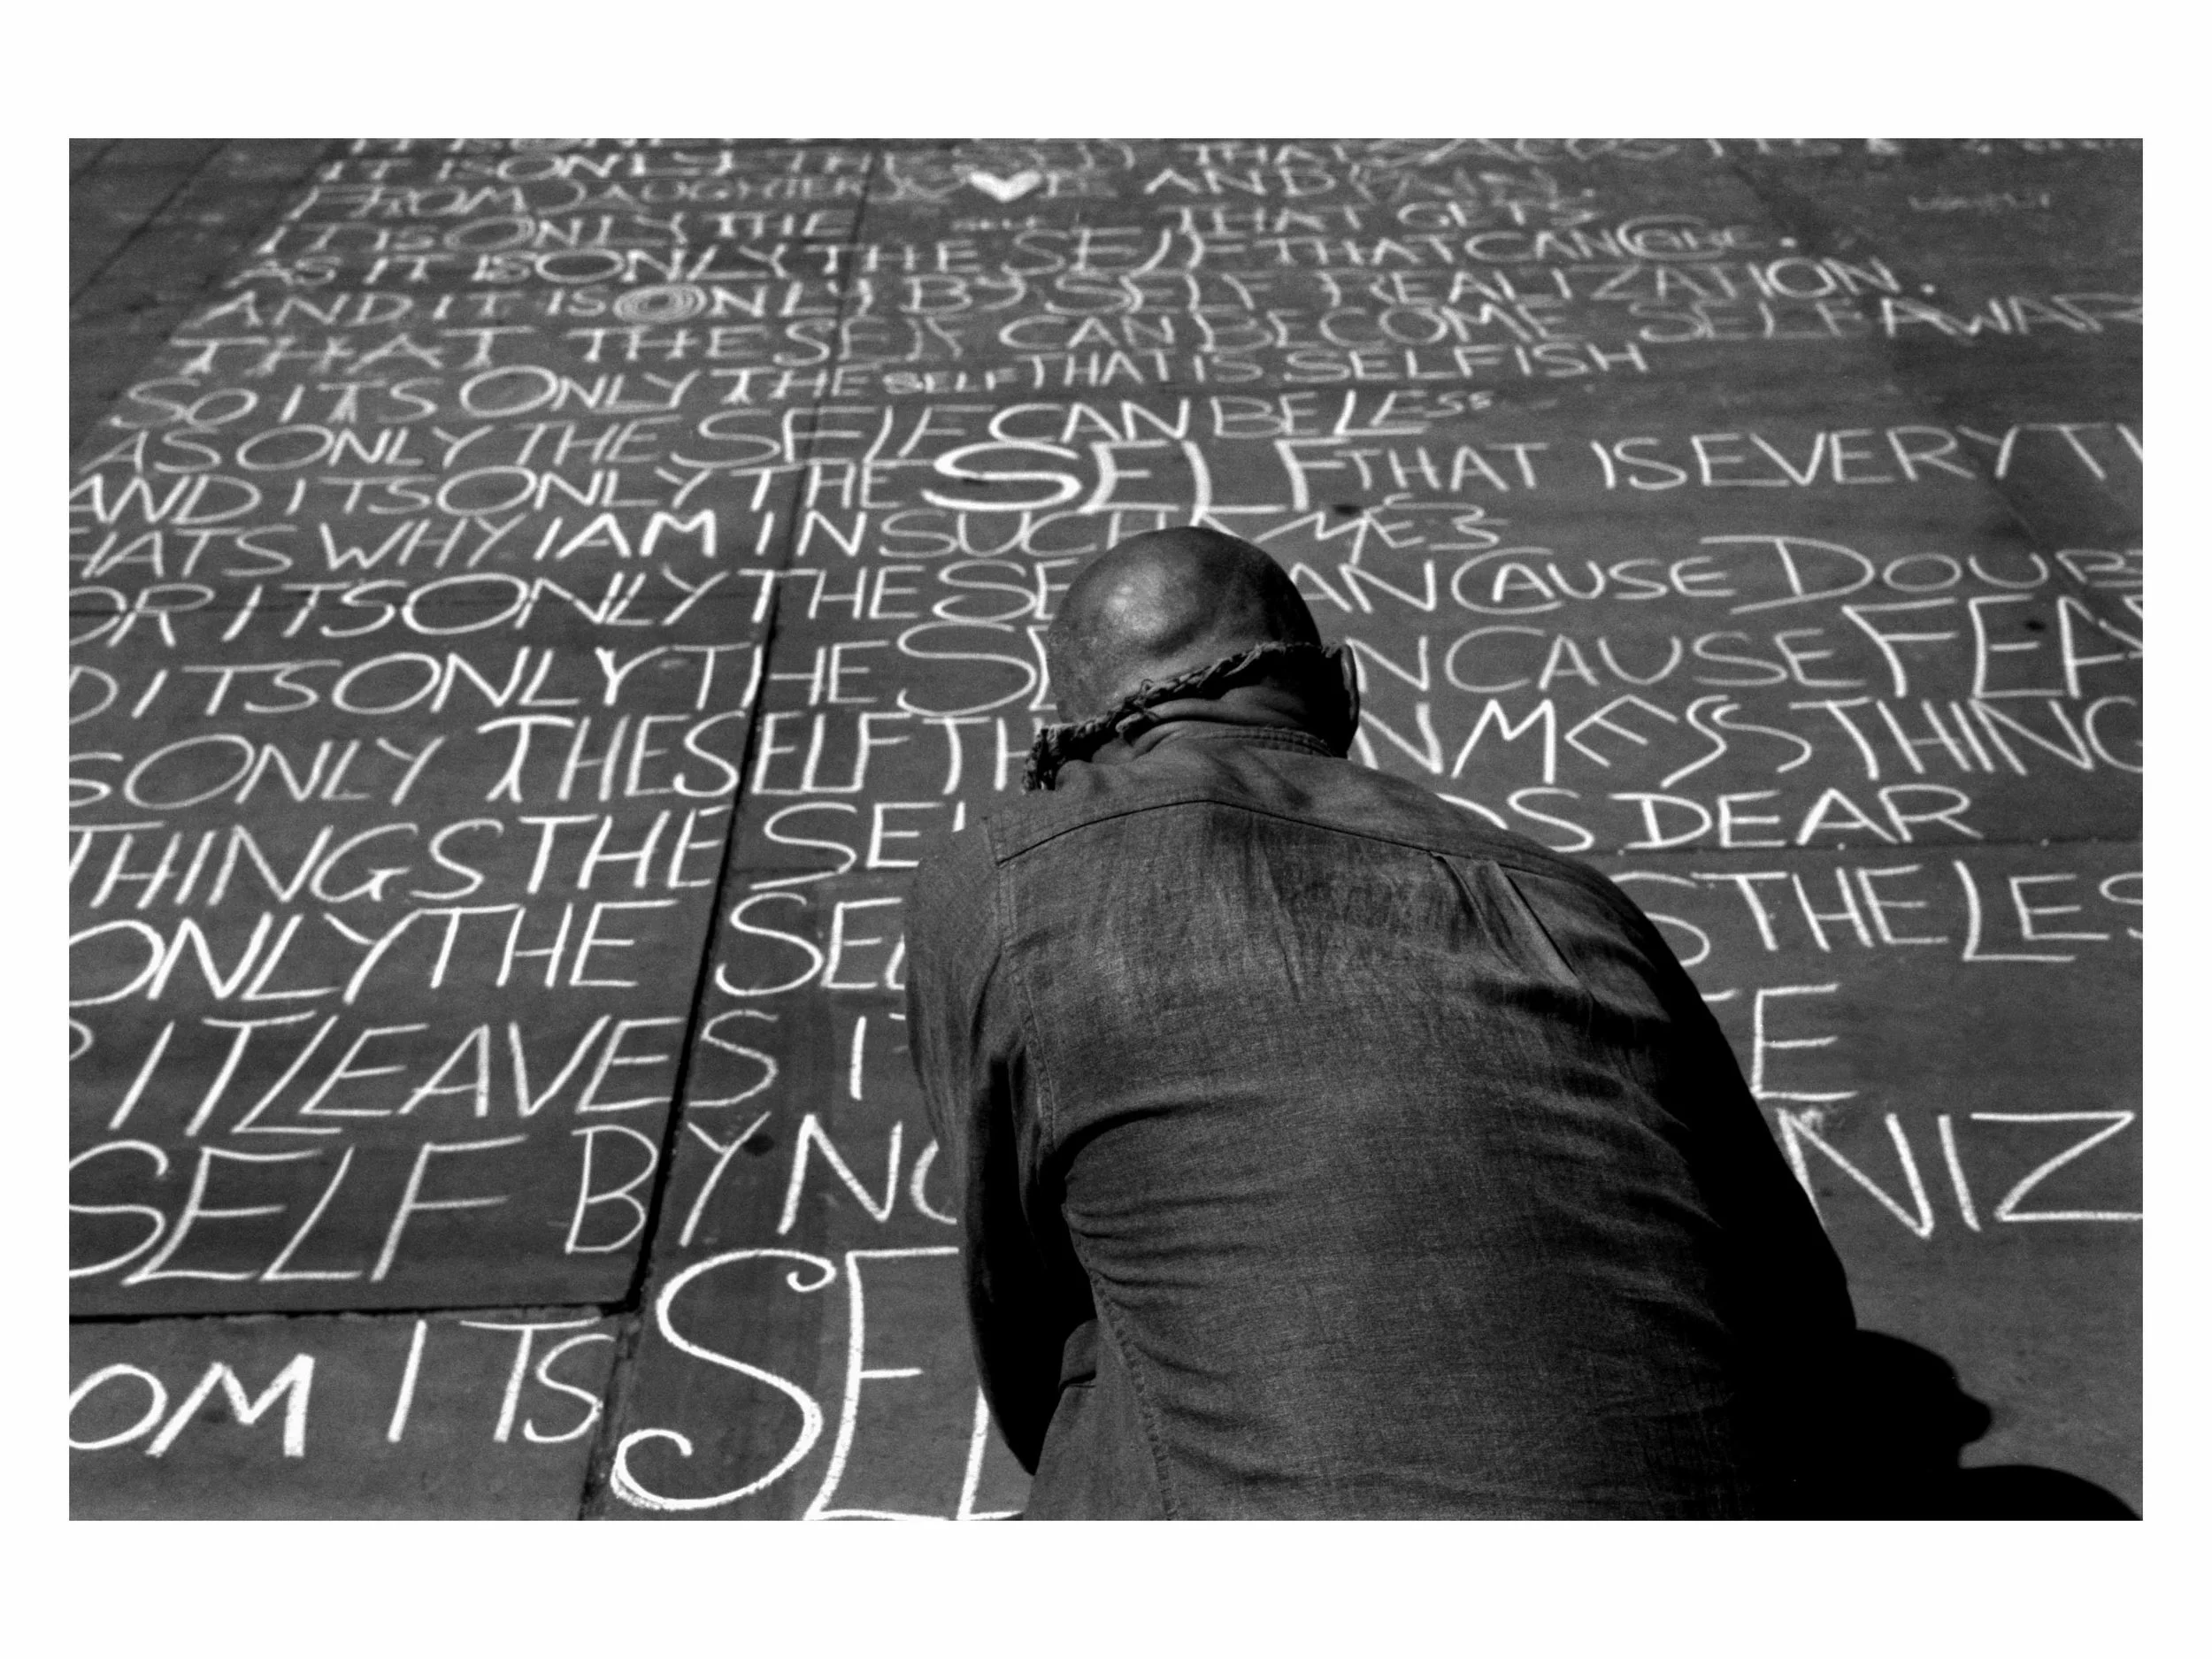 IT IS ONLY THE SELF THAT
FROM DAUGHTER AND PAIN.
IT IS ONLY THE SELF THAT GETS
AS IT IS ONLY THE SELF THAT CAN
AND IT IS ONLY BY SELF REALIZATION.
THAT THE SELF CAN BECOME SELF AWAR
SO ITS ONLY THE SELF THAT IS SELFISH
AS ONLY THE SELF CAN BE LESS
AND ITS ONLY THE SELF THAT IS EVERYTH
HATS WHY I AM IN SUCH MESS
OR ITS ONLY THE SE AN CAUSE DOUB
D ITS ONLY THE SE N CAUSE FEA
S ONLY THE SELF TH N MESS THING
THINGS THE SEL DS DEAR
ONLY THE SEL S THE LES
IT LEAVES IT E
SELF BY NO NIZ
OM ITS SEL